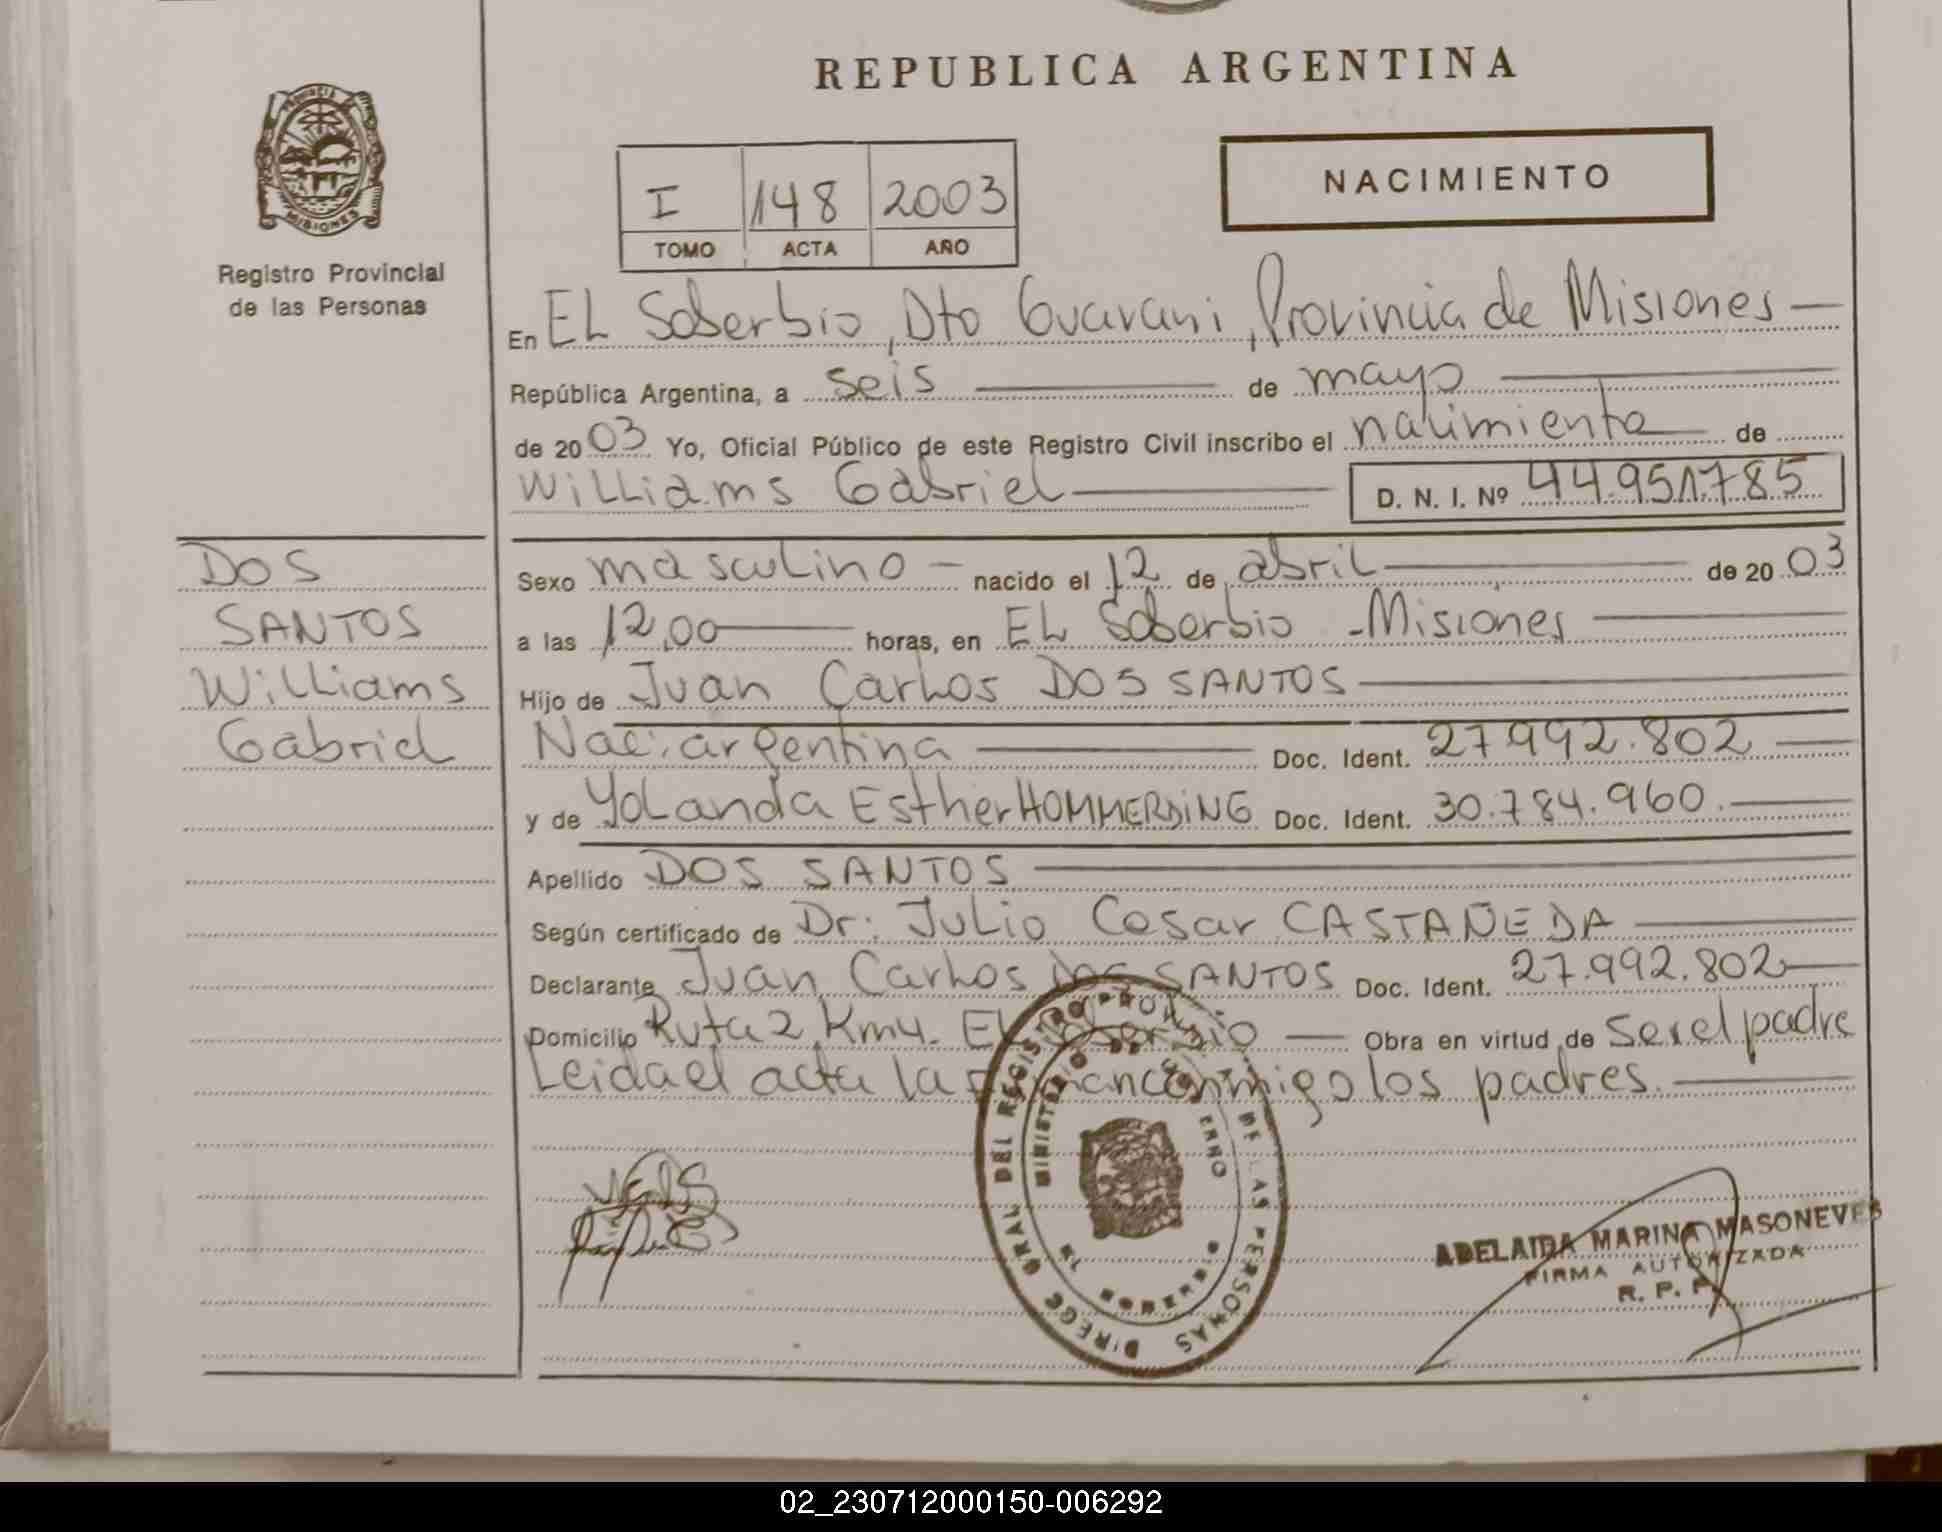 REPUBLICA ARGENTINA
PROVINCIA DE
MISIONES
Registro Provincial
de las Personas
NACIMIENTO
I 148 2003
TOMO ACTA AÑO
En EL Soberbio, Dto Guarani, Provincia de Misiones
República Argentina, a seis de mayo
de 2003 Yo, Oficial Público de este Registro Civil inscribo el nacimiento de
Williams Gabriel D. N. I. Nº 44.951.785
DOS
SANTOS
Williams
Gabriel
Sexo masculino nacido el 12 de abril de 2003
a las 12,00 horas, en EL Soberbio - Misiones
Hijo de Juan Carlos DOS SANTOS
Nac. argentina Doc. Ident. 27.992.802
y de Yolanda Esther HOMMERDING Doc. Ident. 30.784.960.
Apellido DOS SANTOS
Según certificado de Dr: Julio Cesar CASTAÑEDA
Declarante Juan Carlos DOS SANTOS Doc. Ident. 27.992.802
Domicilio Ruta 2 Km 4. EL Soberbio Obra en virtud de ser el padre
Leida el acta la firman conmigo los padres.
DIREC. GRAL DEL REGISTRO PROV. DE LAS PERSONAS
MINISTERIO DE GOBIERNO
ADELAIDA MARINA MASONEVES
FIRMA AUTORIZADA
R. P. P.
02_230712000150-006292